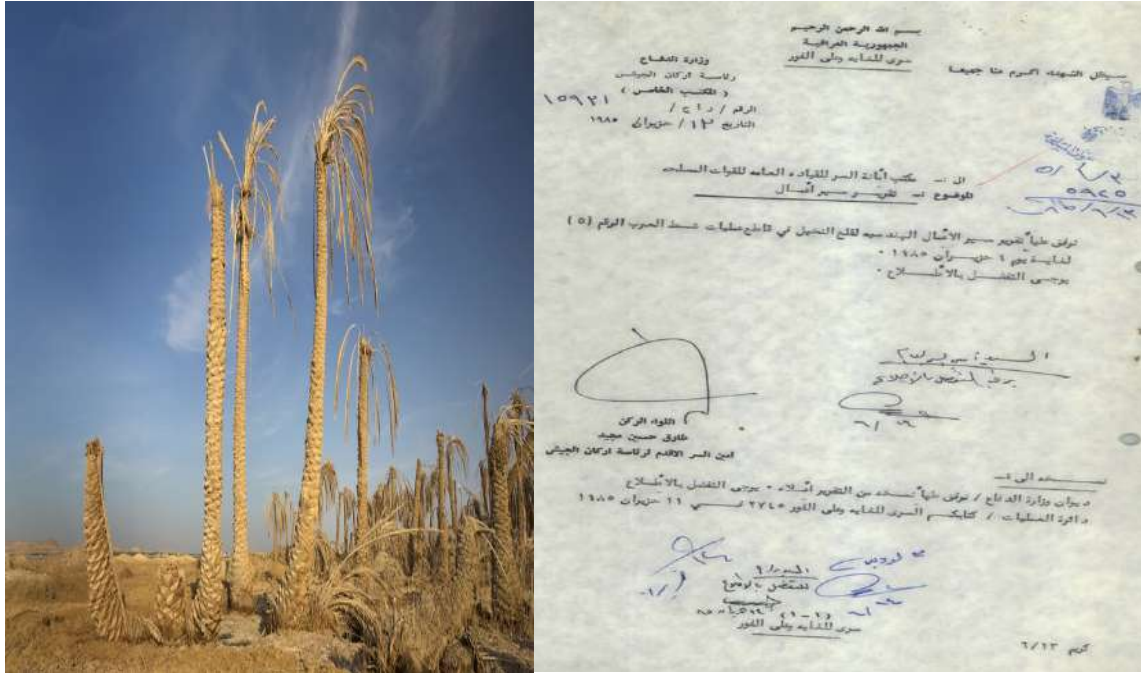 بسم الله الرحمن الرحيم
الجمهورية العراقية
سري للغاية وعلى الفور
سيبقى الشهداء اكرم منا جميعا
وزارة الدفاع
رئاسة اركان الجيش
( المكتب الخاص )
الرقم / د ا ج / ١٥٩٢١
التاريخ ١٢ / حزيران ١٩٨٥
٥٩٢٥
الى :- مكتب امانة السر للقيادة العامة للقوات المسلحة
الموضوع :- تقرير سير اعمال
نرفق طيا تقرير سير الاعمال الهندسيه لقلع النخيل في قاطع عمليات شط العرب الرقم ( ٥ )
لغاية يوم ٩ حزيران ١٩٨٥ ٠
يرجى التفضل بالاطلاع ٠
يرجى التفضل بالاطلاع
اللواء الركن
طارق حسين مجيد
امين السر الاقدم لرئاسة اركان الجيش
نسخه الى :-
ديوان وزارة الدفاع / نرفق طيا نسخه من التقرير اعلاه ٠ يرجى التفضل بالاطلاع
دائرة العمليات / كتابكم السري للغايه وعلى الفور ٢٧٤٥ في ١١ حزيران ١٩٨٥
للتفضل بالاطلاع
( ١ - ١ )
سري للغايه وعلى الفور
كريم ٦/١٢